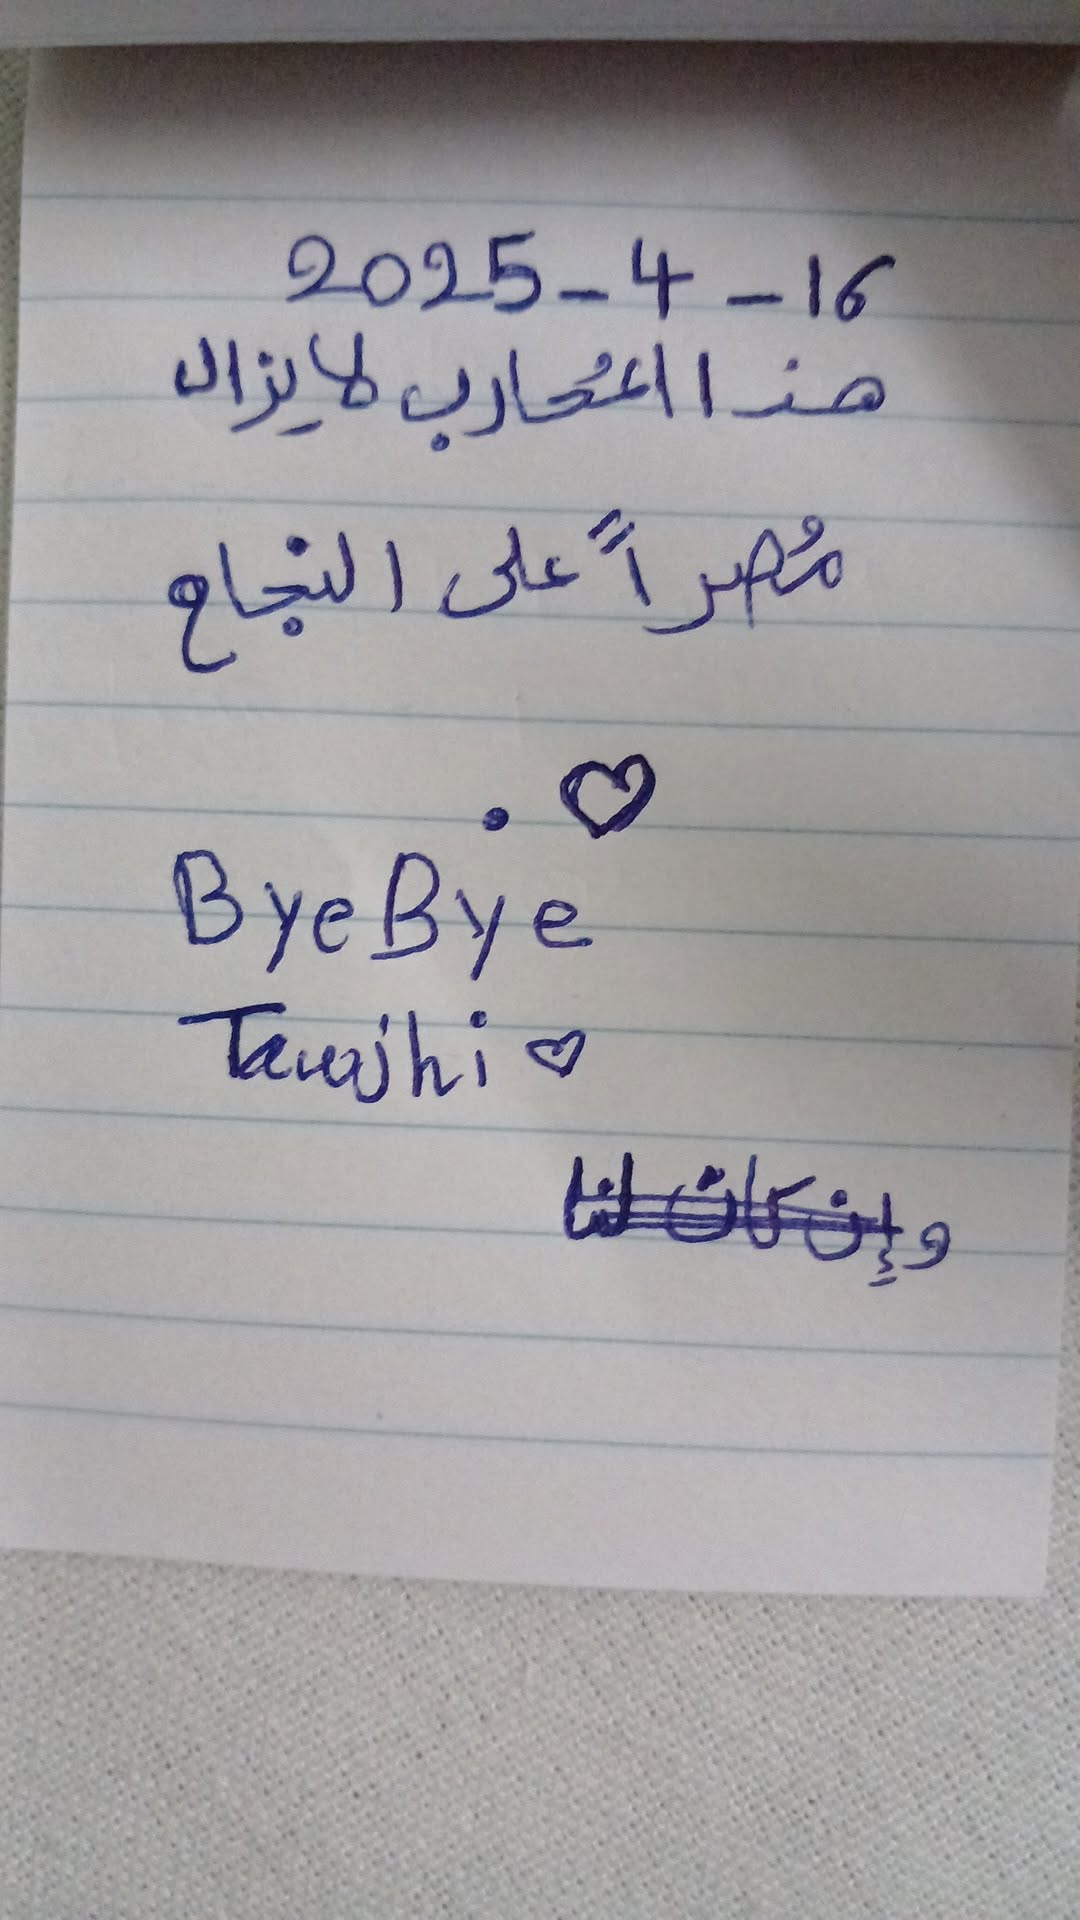 2025-4-16
هذا المُحارب لا يزال
مُصراً على النجاح
.♡
Bye Bye
Tawjhi ♡
وإن كان لنا